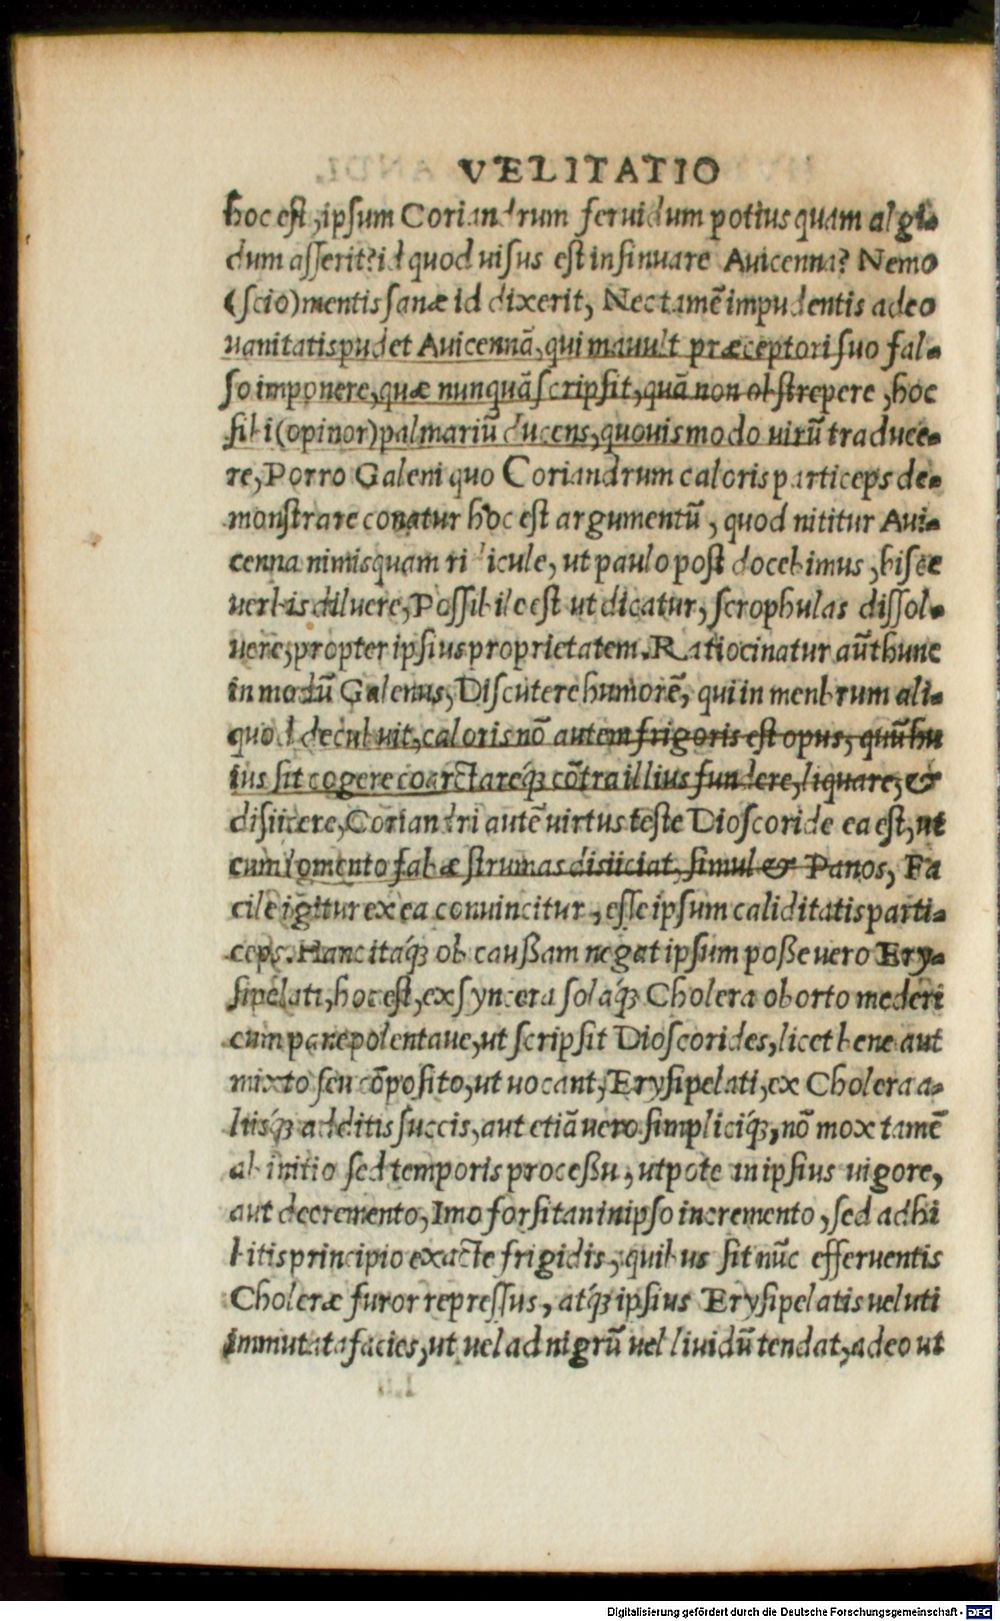 VELITATIO
hoc est, ipsum Coriandrum feruidum potius quam algi-
dum asserit? id quod uisus est insinuare Auicenna? Nemo
(scio) mentis sanæ id dixerit, Nec tamē impudentis adeo
uanitatis pudet Auicennā, qui mauult præceptori suo fal-
so imponere, quæ nunquā scripsit, quā non obstrepere, hoc
sibi (opinor) palmariū ducens, quouis modo uirū traduce-
re, Porro Galeni quo Coriandrum caloris particeps de-
monstrare conatur hoc est argumentū, quod nititur Aui-
cenna nimis quam ridicule, ut paulo post docebimus, hisce
uerbis diluere, Possibile est ut dicatur, scrophulas dissol-
uere, propter ipsius proprietatem. Ratiocinatur aūt hunc
in modū Galenus, Discutere humorē, qui in menbrum ali-
quod decubuit, caloris nō autem frigoris est opus, quū hu
ius sit cogere coarctareq́; cōtra illius fundere, liquare, &
disiicere, Coriandri autē uirtus teste Dioscoride ea est, ut
cum lomento fabæ strumas disiiciat, simul & Panos, Fa
cile igitur ex ea conuincitur, esse ipsum caliditatis parti-
ceps. Hanc itaq́; ob caußam negat ipsum poße uero Ery-
sipelati, hoc est, ex syncera solaq́; Cholera oborto mederi
cum pane polentaue, ut scripsit Dioscorides, licet bene aut
mixto seu cōposito, ut uocant, Erysipelati, ex Cholera a-
liisq́; additis succis, aut etiā uero simpliciq́;, nō mox tamē
ab initio sed temporis proceßu, utpote in ipsius uigore,
aut decremento, Imo forsitan in ipso incremento, sed adhi
bitis principio exacte frigidis, quibus sit nūc efferuentis
Choleræ furor repressus, atq́; ipsius Erysipelatis ueluti
immutata facies, ut uel ad nigrū uel liuidū tendat, adeo ut
Digitalisierung gefördert durch die Deutsche Forschungsgemeinschaft - DFG